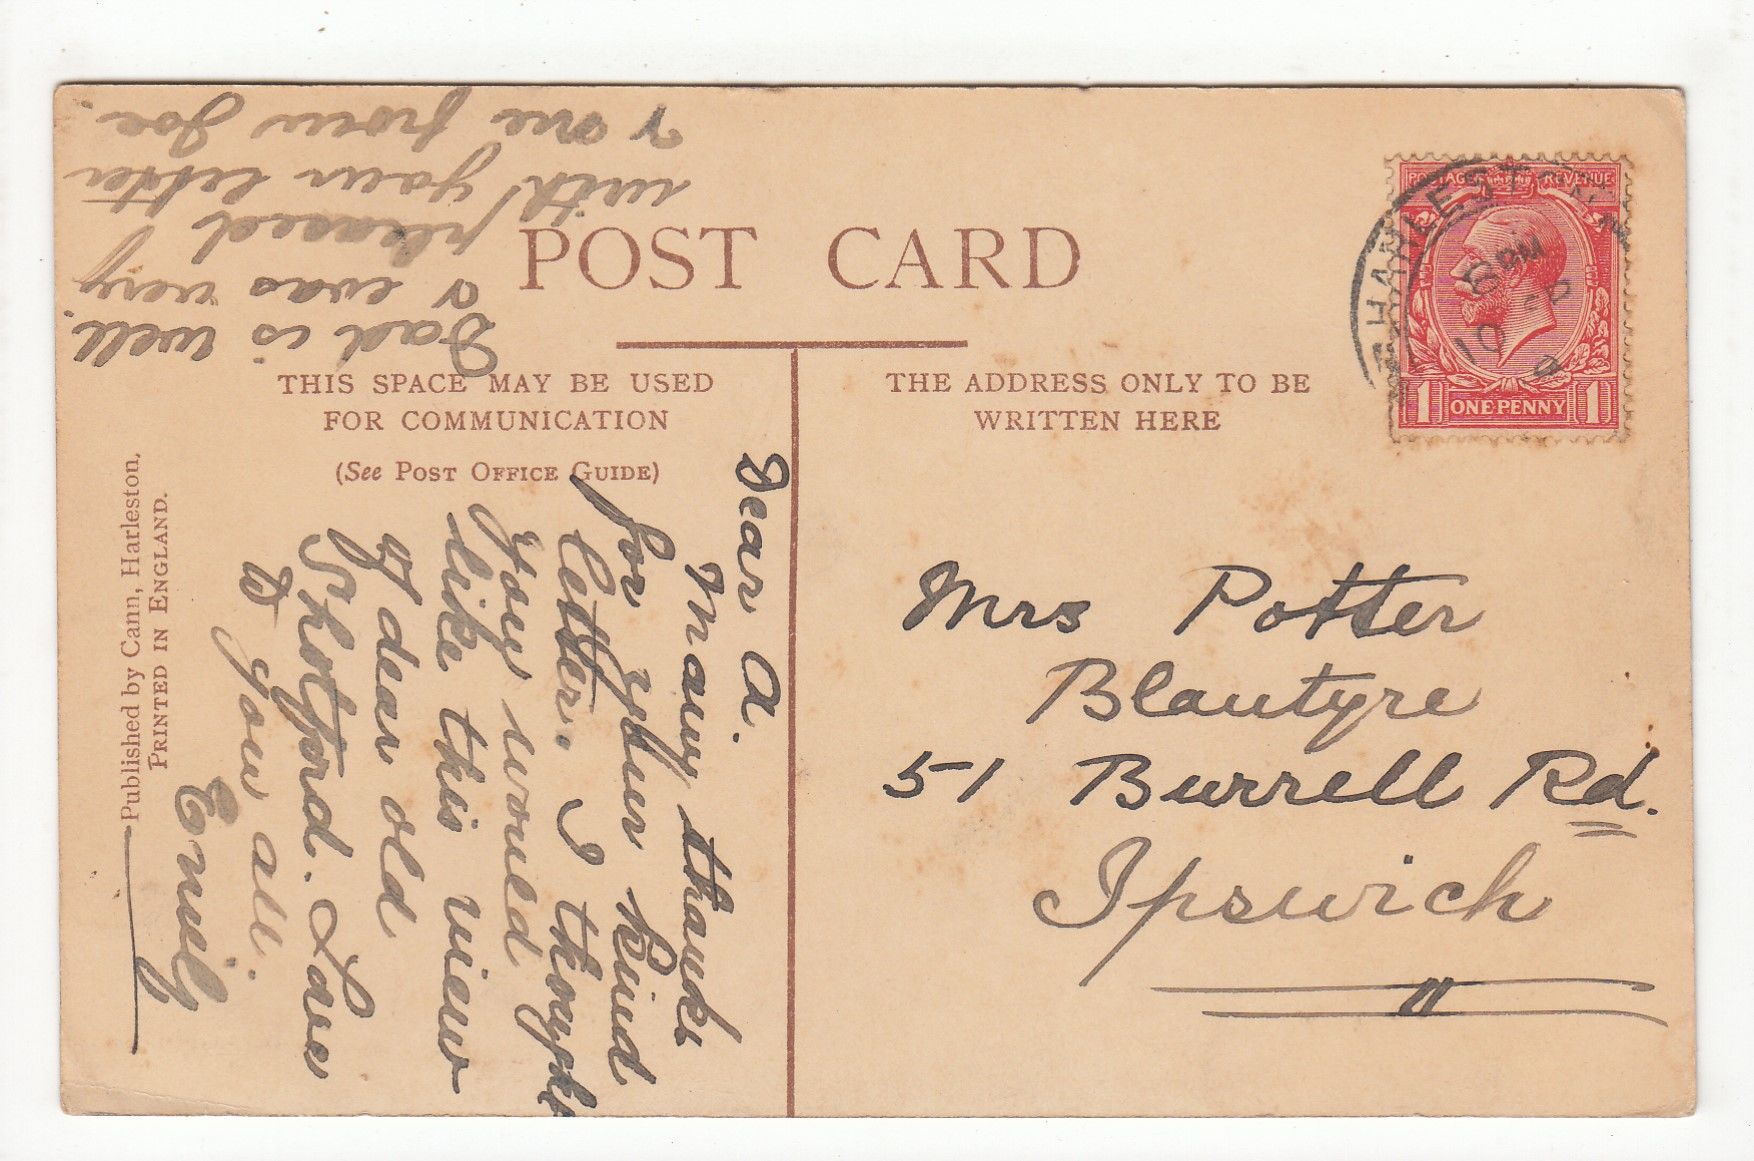 POST CARD
THIS SPACE MAY BE USED
FOR COMMUNICATION
(See POST OFFICE GUIDE)
THE ADDRESS ONLY TO BE
WRITTEN HERE
POSTAGE REVENUE
1 ONE PENNY 1
HARLESTON
6 PM
10
Mrs Potter
Blantyre
51 Burrell Rd.
Ipswich
Dear A.
Many thanks
for your kind
letter. I thought
you would
like this view
of dear old
Shotford. Love
to you all.
Emily
Dad is well.
& was very
pleased
with your letter
& one from Joe.
Published by Cann, Harleston.
PRINTED IN ENGLAND.